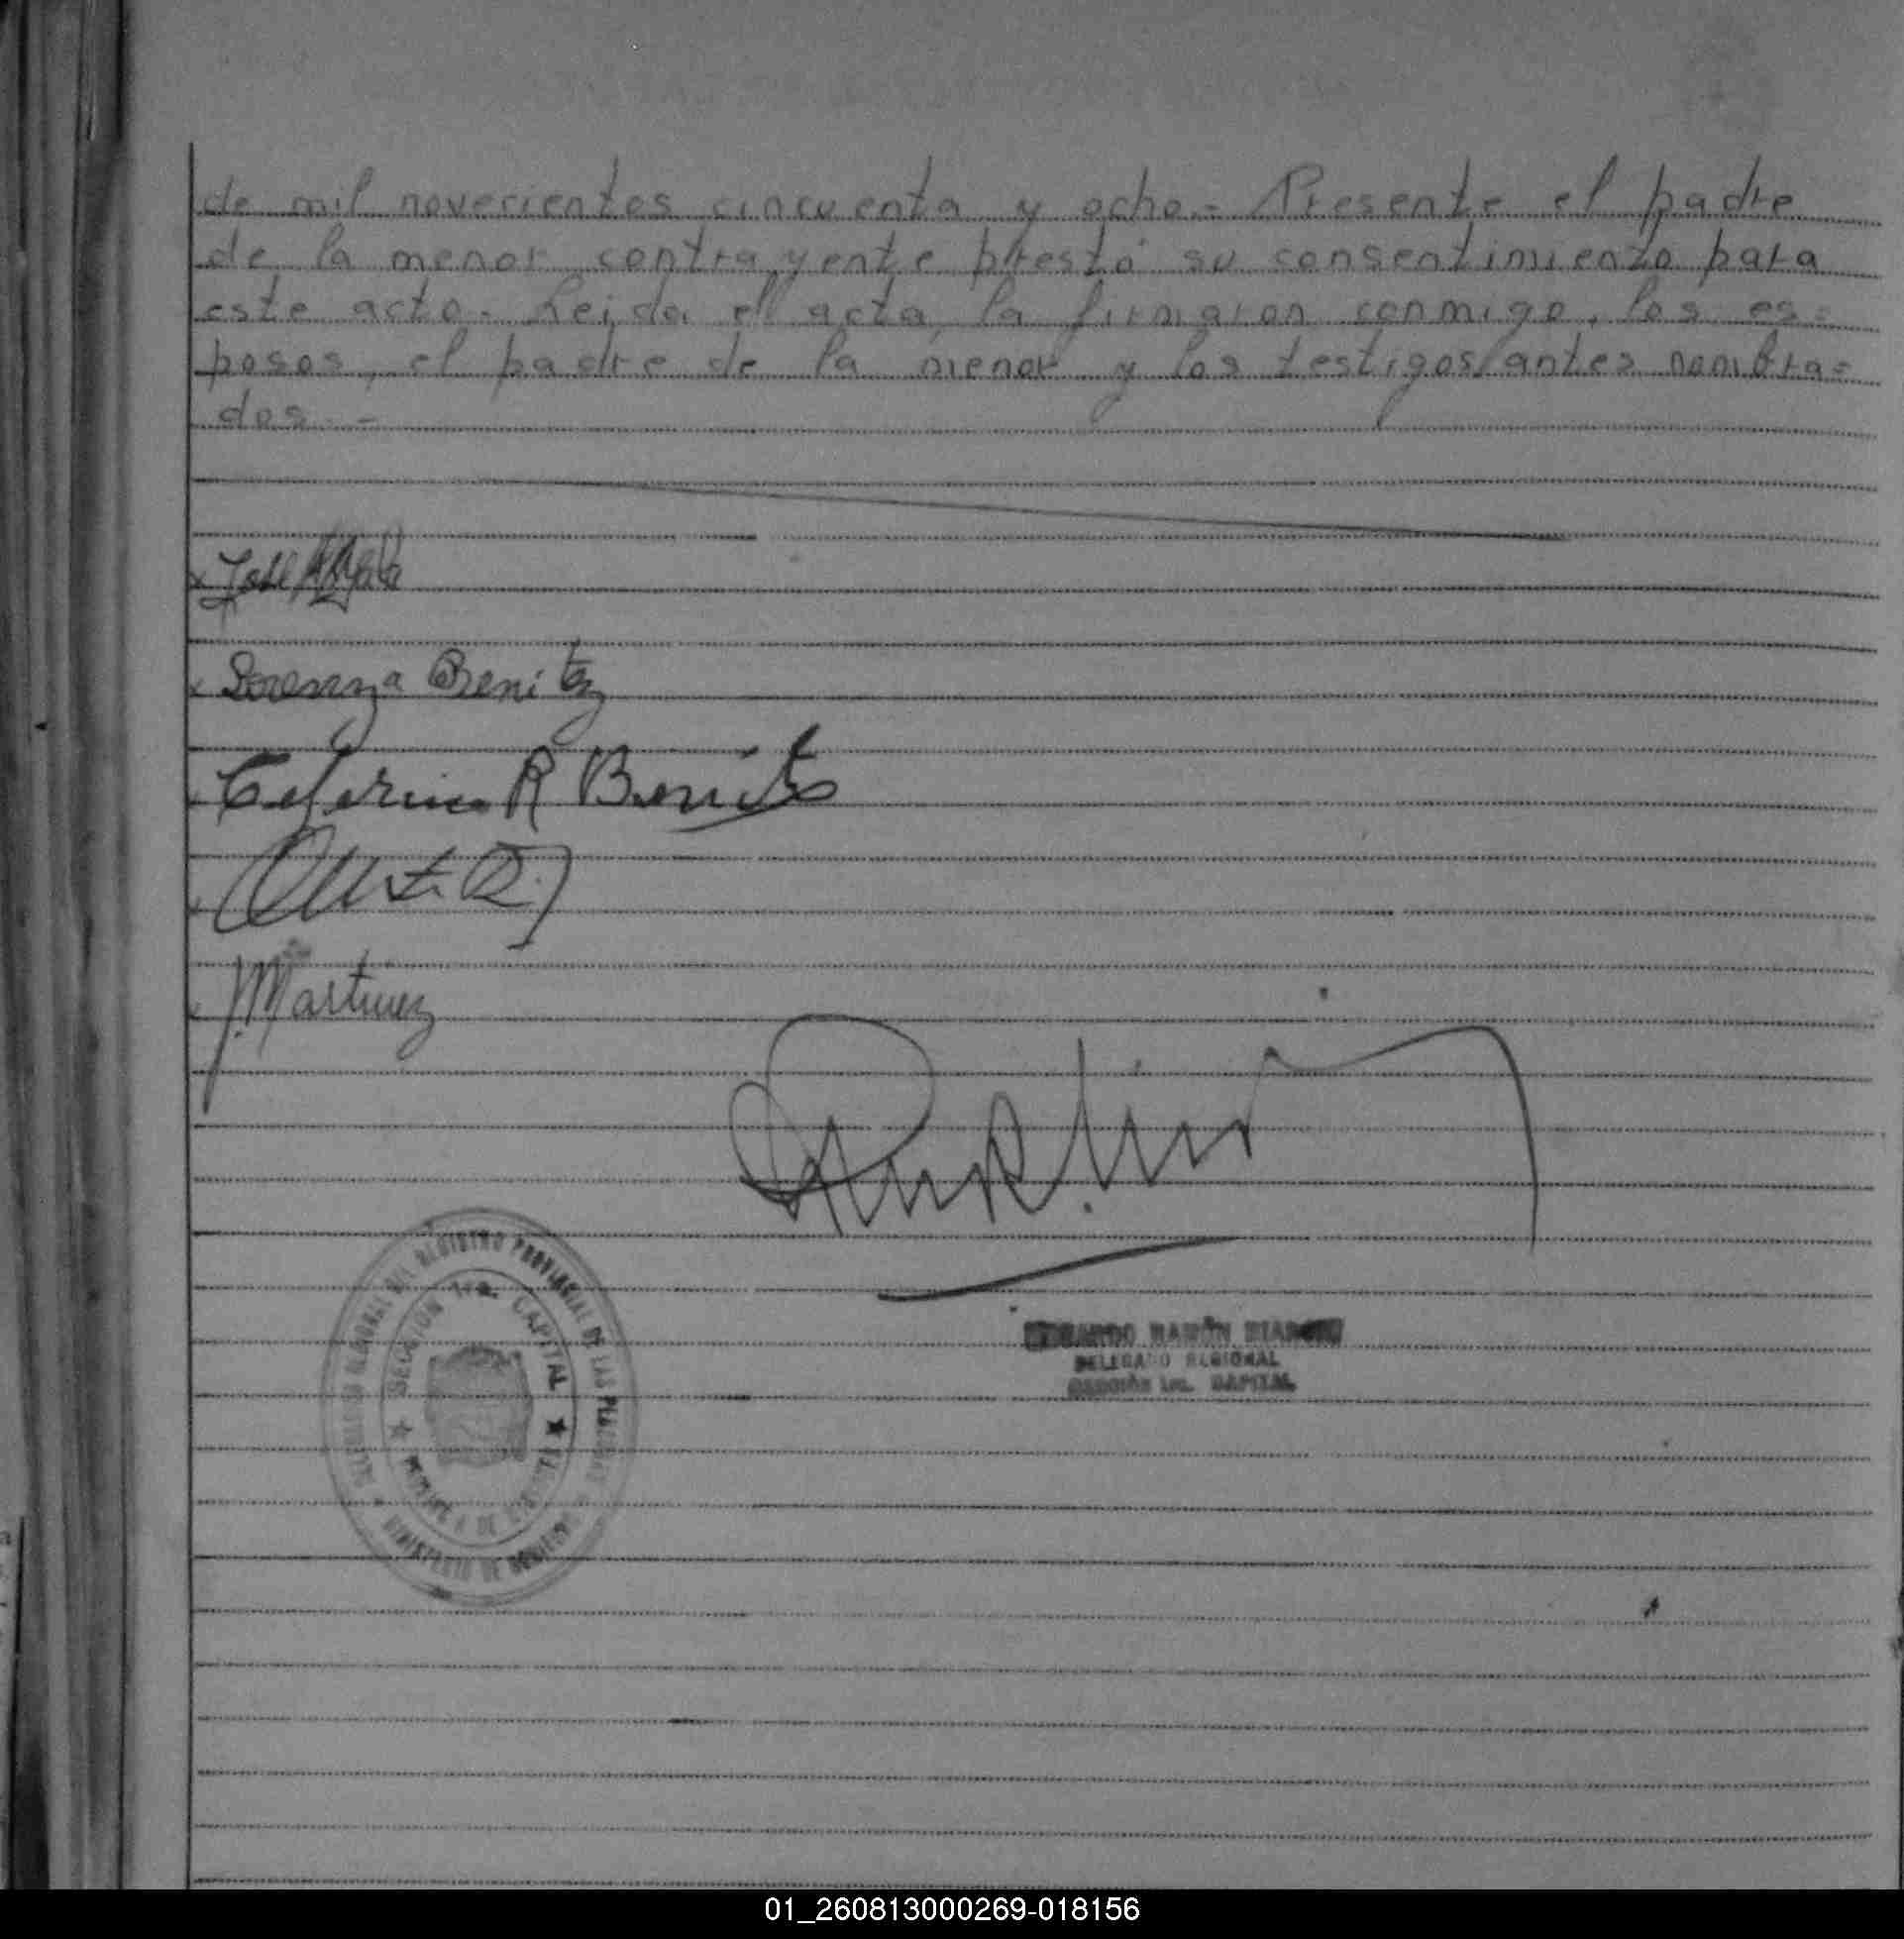 de mil novecientos cincuenta y ocho.= Presente el padre
de la menor contrayente prestó su consentimiento para
este acto.- Leida el acta, la firmaron conmigo, los es=
posos, el padre de la menor y los testigos antes nombra=
dos.-
José
Lorenza Benitez
Ceferino R Benitez
J. Martinez
RAMÓN
DELEGADO REGIONAL
SECCIÓN 1ra. CAPITAL
DEL REGISTRO PROVINCIAL DE LAS PERSONAS
MINISTERIO DE GOBIERNO
SECCION 1ra. CAPITAL
01_260813000269-018156